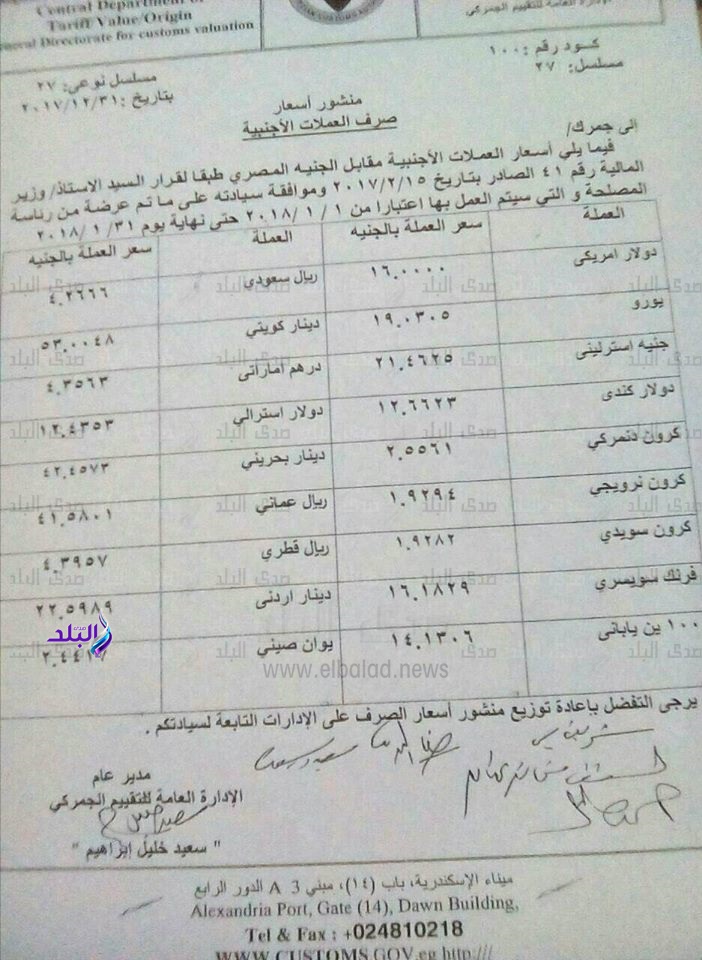 Central Department of
Tariff Value/Origin
General Directorate for customs valuation
الإدارة العامة للتقييم الجمركي
كود رقم : ١٠٠
مسلسل: ٢٧
مسلسل نوعي: ٢٧
بتاريخ :٢٠١٧/١٢/٣١
منشور أسعار
صرف العملات الأجنبية
الى جمرك/
فيما يلي أسعار العملات الأجنبية مقابل الجنيه المصري طبقا لقرار السيد الاستاذ/ وزير
المالية رقم ٤١ الصادر بتاريخ ٢٠١٧/٢/١٥ وموافقة سيادته على ما تم عرضة من رئاسة
المصلحة و التي سيتم العمل بها اعتبارا من ١ / ١ /٢٠١٨ حتى نهاية يوم ٣١/ ١ /٢٠١٨
العملة سعر العملة بالجنيه العملة سعر العملة بالجنيه
دولار امريكى ١٦.٠٠٠٠ ريال سعودي ٤.٢٦٦٦
يورو ١٩.٠٣٠٥ دينار كويتي ٥٣.٠٠٤٨
جنيه استرلينى ٢١.٤٦٢٥ درهم اماراتى ٤.٣٥٦٣
دولار كندى ١٢.٦٦٢٣ دولار استرالي ١٢.٤٣٥٣
كرون دنمركي ٢.٥٥٦١ دينار بحريني ٤٢.٤٥٧٣
كرون نرويجي ١.٩٢٩٤ ريال عماني ٤١.٥٨٠١
كرون سويدي ١.٩٢٨٢ ريال قطري ٤.٣٩٥٧
فرنك سويسري ١٦.١٨٢٩ دينار اردنى ٢٢.٥٩٨٩
١٠٠ ين يابانى ١٤.١٣٠٦ يوان صيني
صدى البلد
www.elbalad.news
يرجى التفضل بإعادة توزيع منشور أسعار الصرف على الإدارات التابعة لسيادتكم .
مدير عام
الإدارة العامة للتقييم الجمركي
" سعيد خليل إبراهيم "
ميناء الإسكندرية، باب (١٤)، مبني 3 A الدور الرابع
Alexandria Port, Gate (14), Dawn Building,
Tel & Fax : +024810218
WWW.CUSTOMS.GOV.eg http:///